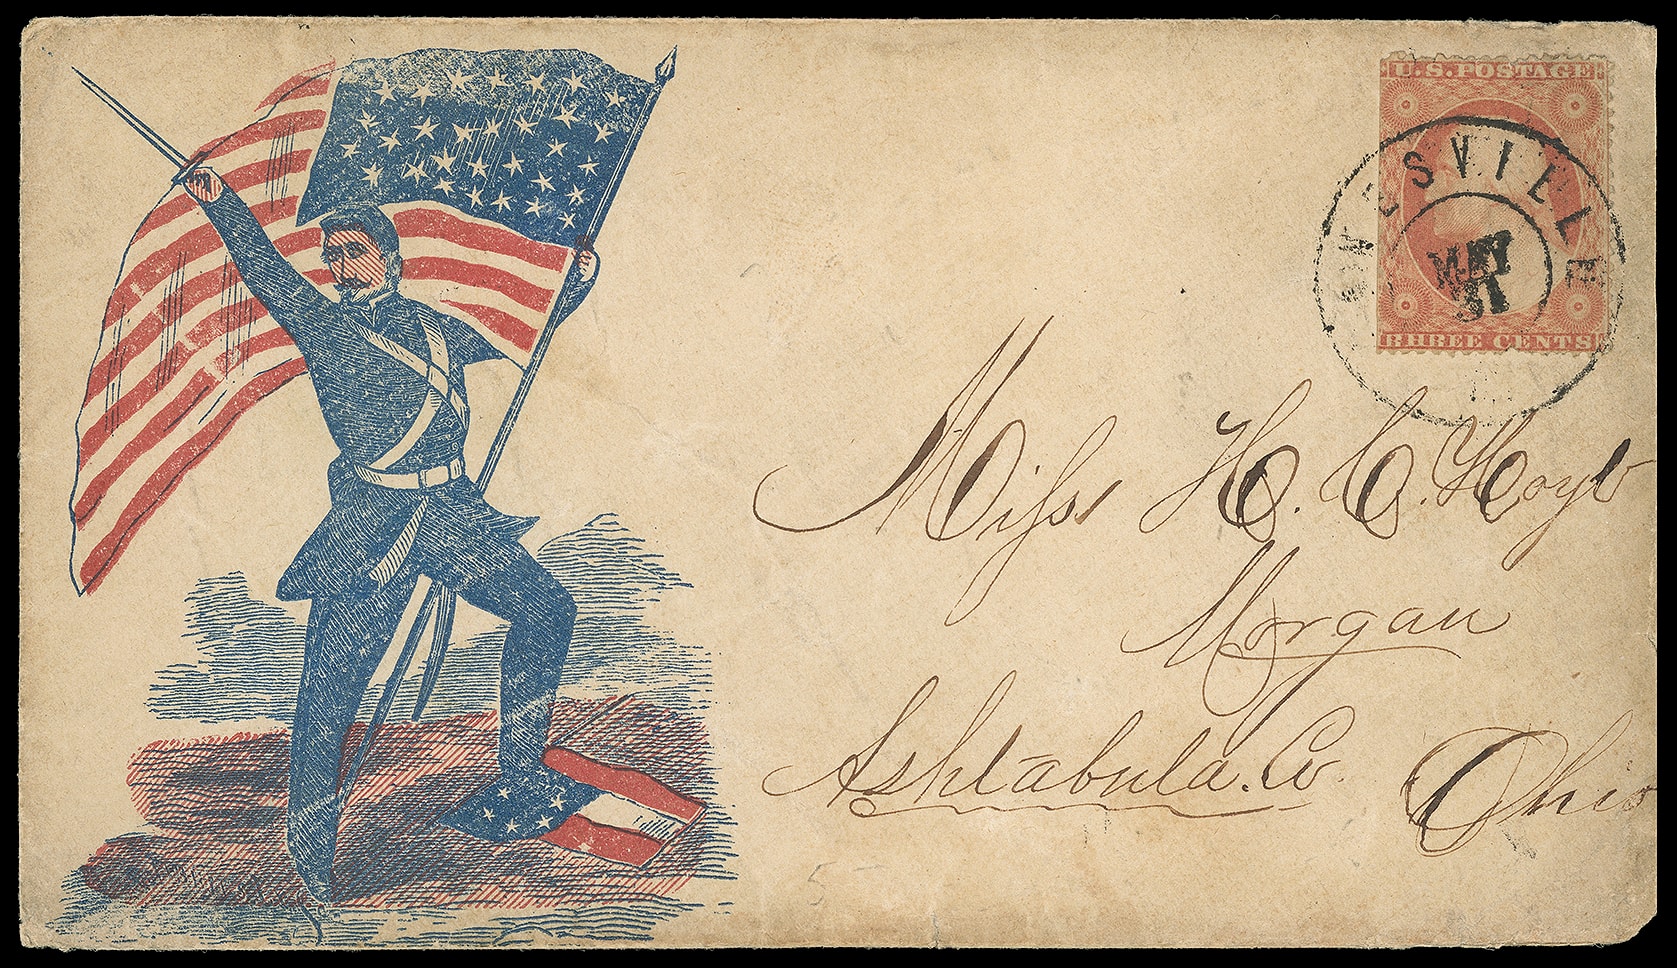 U.S. POSTAGE
THREE CENTS
MAY
31
Miss H. C. Hoyt
Morgan
Ashtabula. Co. Ohio
5